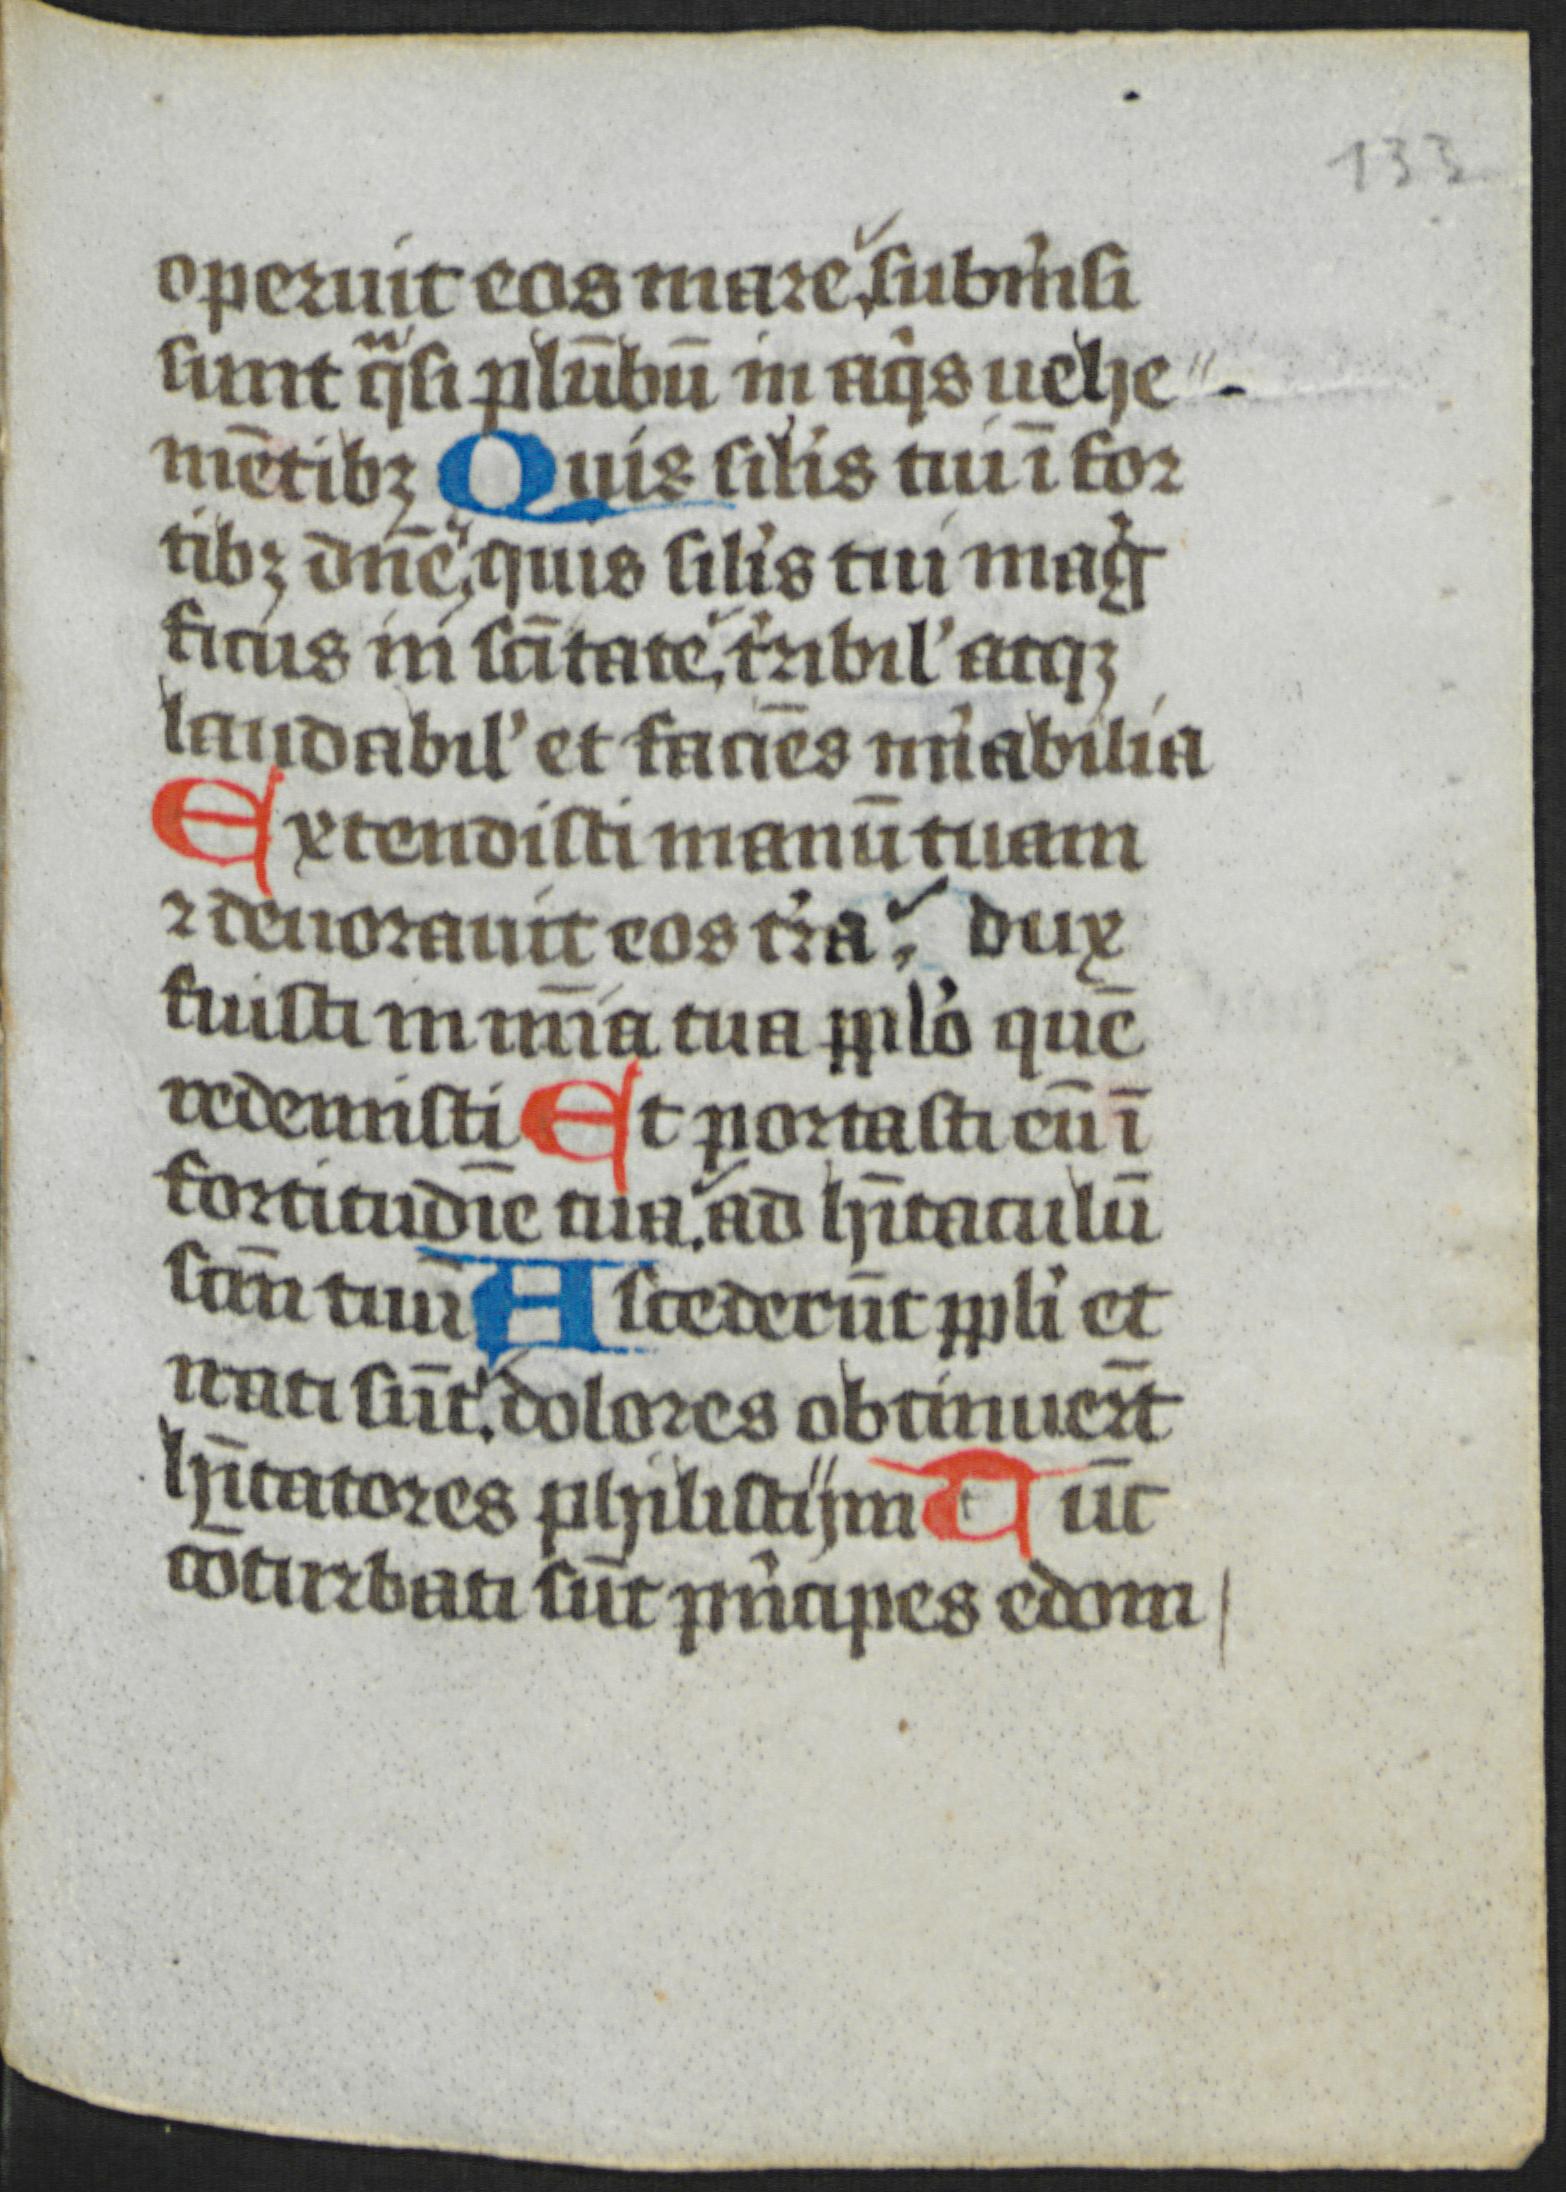 133
operuit eos mare, submˀsi
sunt qͣsi plūbū in aqͥs uehe
mētibꝫ Quis silis tui ī for
tibꝫ dn̄e, quis silis tui magͥ
ficus in sc̄itate, tˀribil' atqꝫ
laudabil' et faciēs mˀabilia
Extendisti manū tuam
⁊ deuorauit eos tˀra, dux
fuisti in mīa tua ppl'o quē
redemisti Et portasti eū ī
fortitudīe tua. ad hītaculū
sc̄m tuū Ascēderūt ppl'i et
irati sūt. dolores obtinuer̄t
hītatores philistijm Tūc
cōturbati sūt pͥncipes edom